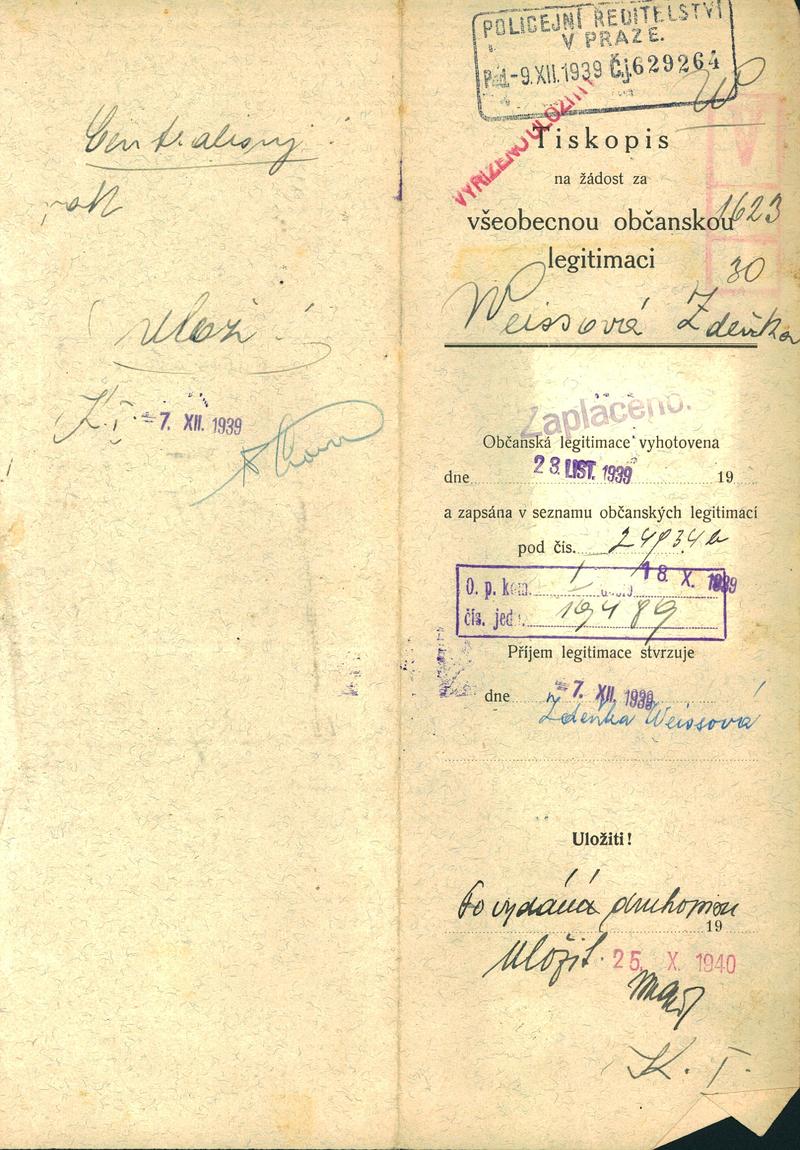 rok
vlož
K. I. 7. XII. 1939
POLICEJNÍ ŘEDITELSTVÍ
V PRAZE.
-9.XII.1939 Čj. 629264
W
VYŘÍZENO ULOŽITI
V
Tiskopis
na žádost za
všeobecnou občanskou
1623
legitimaci
30
Weissová Zdeňka
Zaplaceno.
Občanská legitimace vyhotovena
dne 23. LIST. 1939 19
a zapsána v seznamu občanských legitimací
pod čís.
O. p. kom. 18. X. 1939
čís. jed.
Příjem legitimace stvrzuje
dne 7. XII. 1939
Zdeňka Weissová
Uložiti!
Po vydání druhopisu
19
Uložit. 25. X. 1940
K. I.